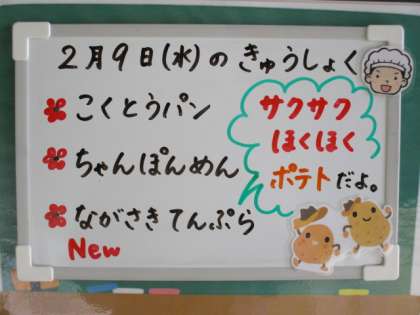 2月9日(水)のきゅうしょく
こくとうパン
ちゃんぽんめん
ながさきてんぷら
New
サクサク
ほくほく
ポテトだよ。